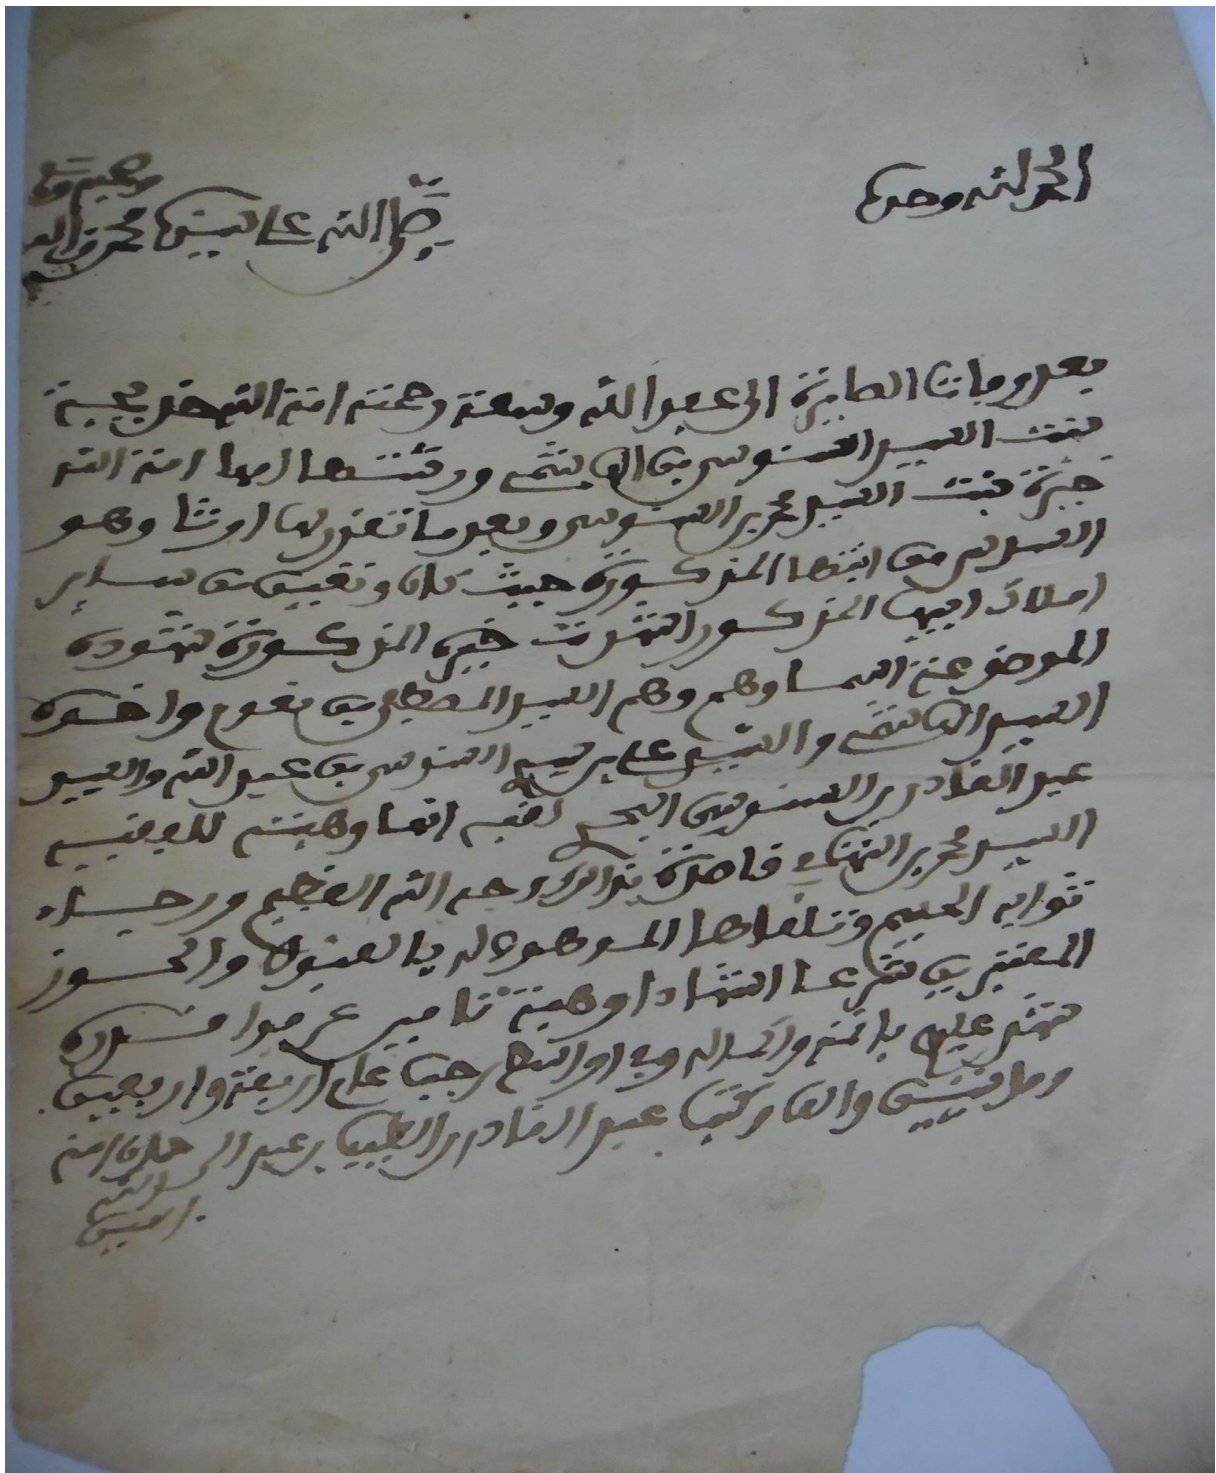 الحمد لله وحده
صلى الله على سيدنا محمد وآله
وصحبه
بعد وفات الصايرة الى عفو الله وسعة رحمته امة الله خديجة
بنت السيد السنوسي بن الهاشمي ورثتها امها امة الله
خيرة بنت السيد محمد بن السنوسي وبعدما تقرر لها ارثا وهو
السدس من ابنتها المذكورة حيث كان وتعين من ساير
املاك ابيها المذكور اشهدت خيرة المذكورة شهوده
الموضوع عنه اسماوهم وهم السيد المصطفى بن واخوه
السيد الهاشمي والسيد علي بن السنوسي بن عبد الله والسيد
عبد القادر بن السنوسي انها وهبته للفقيه
السيد محمد بن التهامي قاصدة بذالك وجه الله العظيم ورجاء
ثوابه الجسيم وتلقاها الموهوب له بالقبول والحوز
المعتبرين شرعا اشهادا وهبة تامين عرفوا قدره
شهد عليهم باتمه واكماله وفي اواسط رجب عام اربعة واربعين
ومايتين والف وكتب عبد القادر بن الطيب بن عبد الرحمان امنه
الله
امين